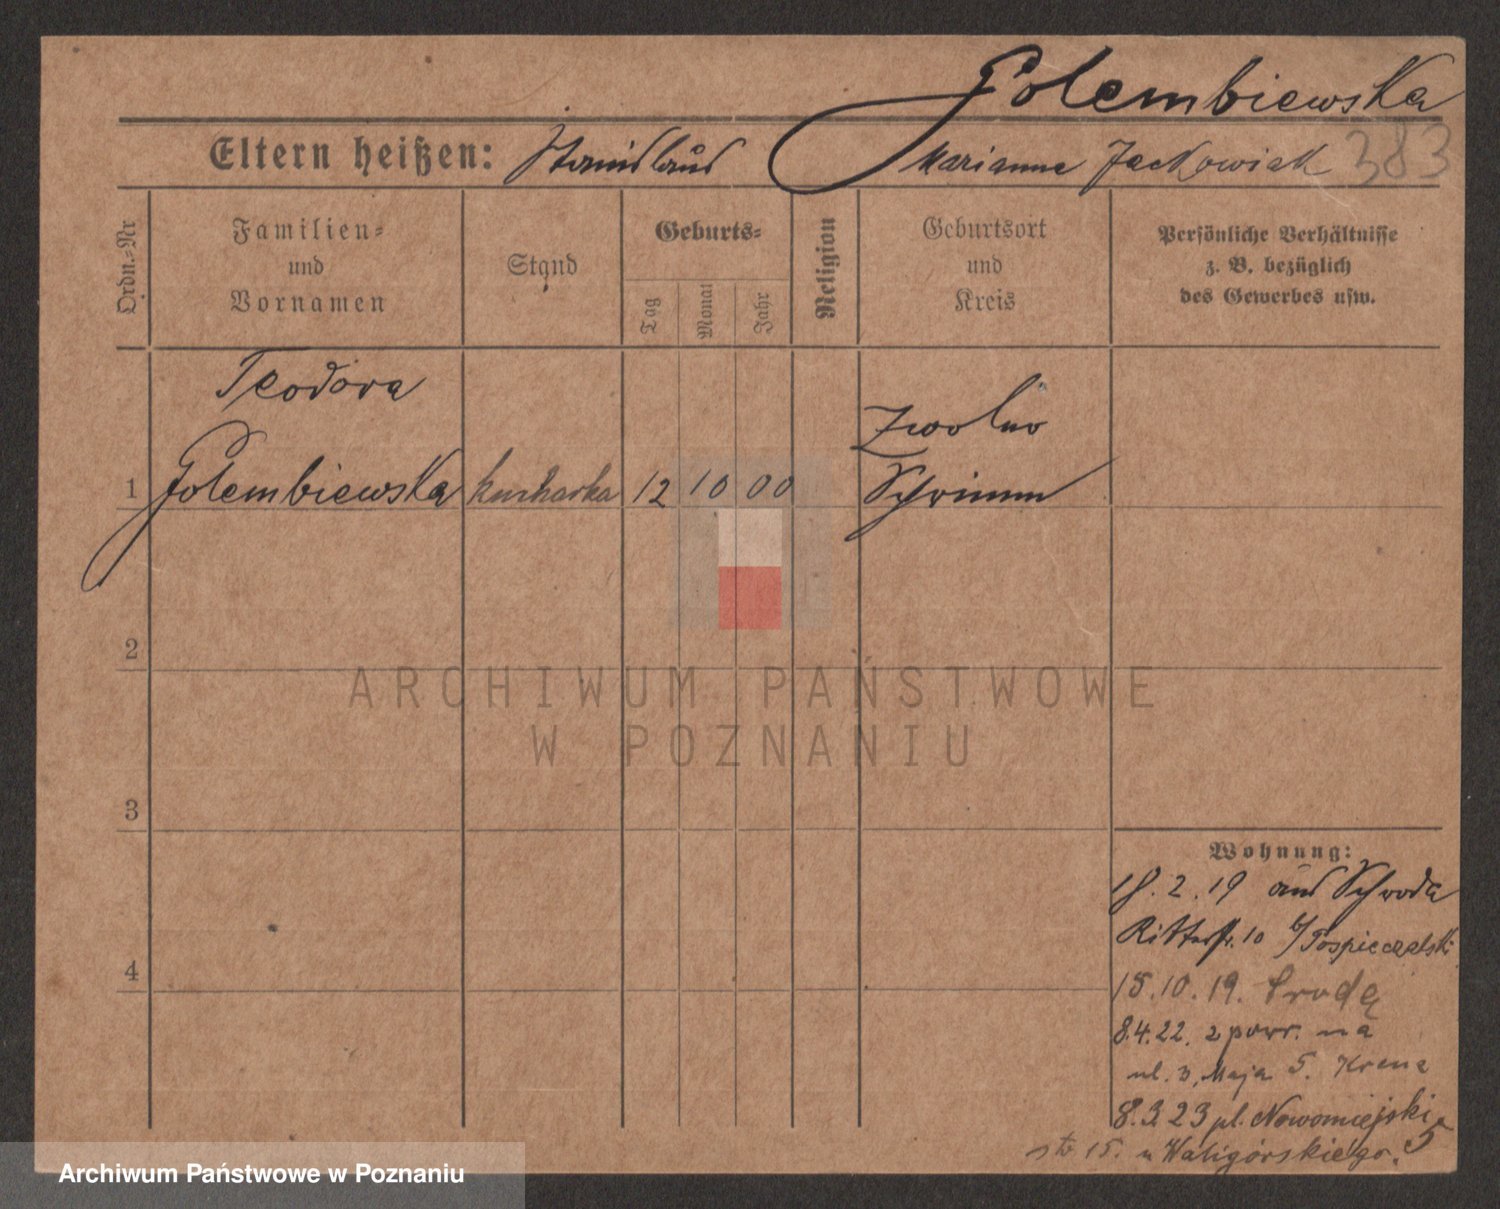 Golembiewska
Eltern heißen: Stanislaus Marianna Jackowiak 383
Ordn.-Nr
Familien-
und
Vornamen
Stand
Geburts-
Tag
Monat
Jahr
Religion
Geburtsort
und
Kreis
Persönliche Verhältnisse
z. B. bezüglich
des Gewerbes usw.
Teodora
Zwolno
1 Golembiewska kucharka 12 10 00 Schrimm
2
ARCHIWUM PAŃSTWOWE
W POZNANIU
3
Wohnung:
18.2.19 aus Schroda
Ritterstr. 10 b/Pospieszalski
4
15.10.19. Środa
8.4.22. z powr. na
ul. 3. Maja 5.
8.3.23 pl. Nowomiejski 5
15. u Waligórskiego.
Archiwum Państwowe w Poznaniu